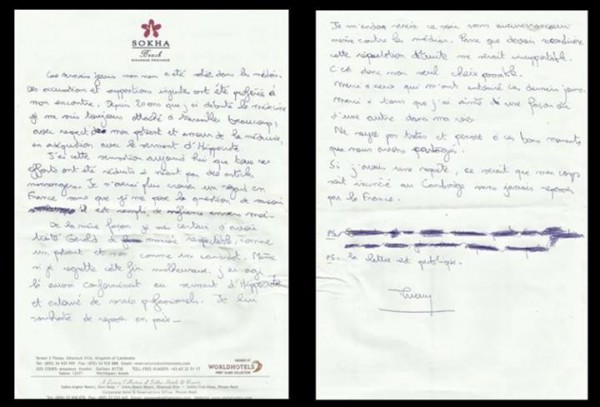 SOKHA
Beach
Ces derniers jours mon nom a été sali dans les médias.
Des accusations et suppositions injustes ont été proférées à
mon encontre. Depuis 20 ans que j'ai débuté la médecine
je me suis toujours attaché à travailler beaucoup,
avec respect de mon patient et amour de la médecine,
en adéquation avec le serment d'Hippocrate.
J'ai cette sensation aujourd'hui que tous ces
efforts ont été réduits à néant par des articles
mensongers. Je n'arrive plus croiser un regard en
France sans que je me pose la question de savoir
il est rempli de méfiance envers moi.
De la même façon je suis certain d'avoir
traité Gérald de manière respectable, comme
un patient et non comme un candidat. Même
si je regrette cette fin malheureuse, j'ai agi
là aussi conformément au serment d'Hippocrate
et entouré de vrais professionnels. Je lui
souhaite de reposer en paix
WORLDHOTELS
Je m'endors ce soir sans aucune rancœur
même contre les médias. Parce que devoir reconstruire
cette réputation détruite me serait insupportable.
C'est donc mon seul choix possible.
Merci à ceux qui m'ont entouré ces derniers jours.
Merci à tous ceux que j'ai aimés d'une façon ou
d'une autre dans ma vie.
Ne soyez pas tristes et pensez à ces bons moments
que nous avons partagés.
Si j'avais une requête, ce serait que mon corps
soit incinéré au Cambodge sans jamais repasser
par la France.
PS.
PS. la lettre est
Thierry